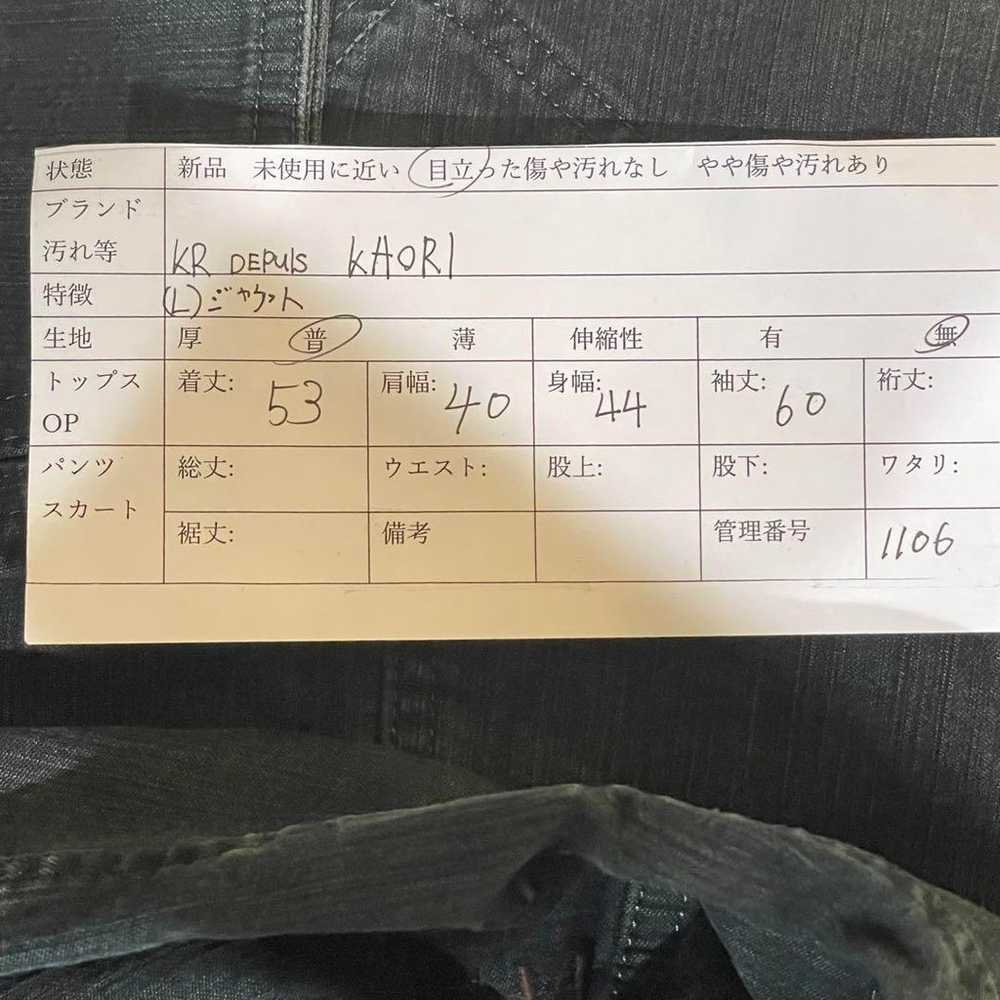 状態 新品 未使用に近い 目立った傷や汚れなし やや傷や汚れあり
ブランド
汚れ等 KR DEPUIS KAORI
特徴 (L)ジャケット
生地 厚 普 薄 伸縮性 有 無
トップス 着丈: 53 肩幅: 40 身幅: 44 袖丈: 60 裄丈:
OP
パンツ 総丈: ウエスト: 股上: 股下: ワタリ:
スカート
裾丈: 備考 管理番号 1106